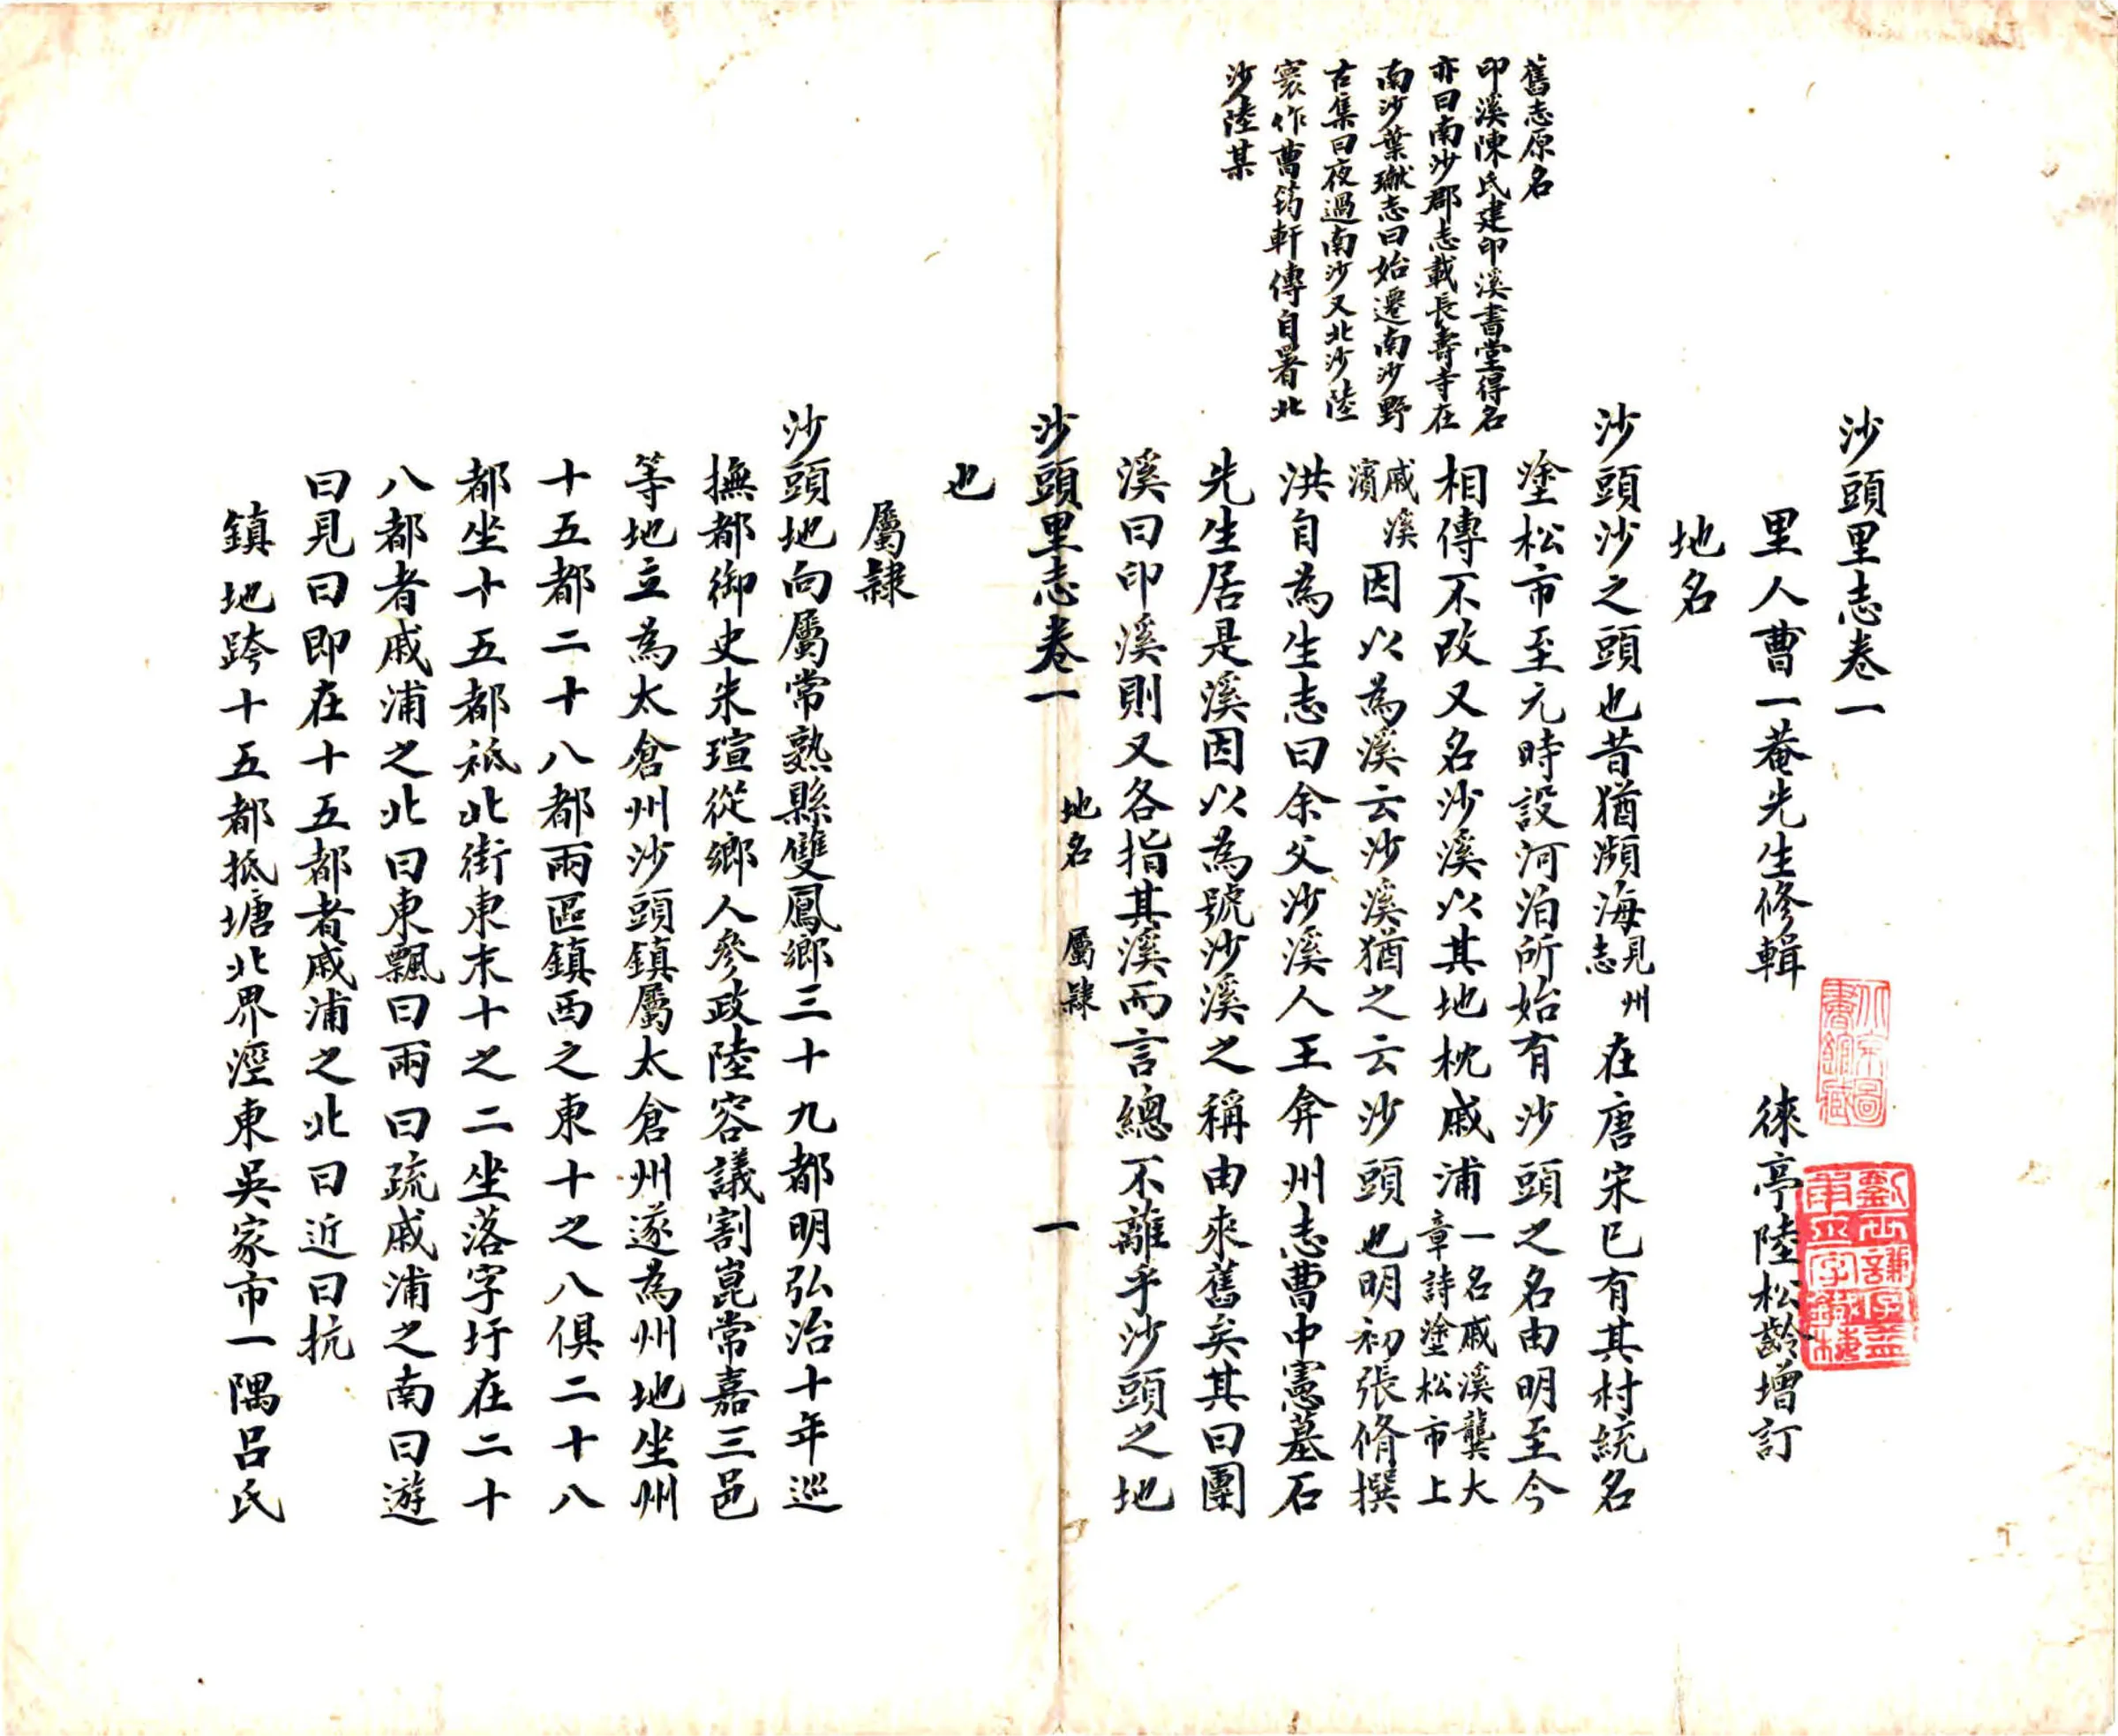 沙頭里志卷一
里人曹一菴先生修輯 徠亭陸松齡增訂
地名
沙頭沙之頭也昔猶瀕海見州志在唐宋已有其村統名
塗松市至元時設河泊所始有沙頭之名由明至今
相傳不改又名沙溪以其地枕戚浦一名戚溪龔大章詩塗松市上
戚溪濱因以為溪云沙溪猶之云沙頭也明初張脩撰
洪自為生志曰余父沙溪人王弇州志曹中憲墓石
先生居是溪因以為號沙溪之稱由來舊矣其曰團
溪曰印溪則又各指其溪而言總不離乎沙頭之地
舊志原名
印溪陳氏建印溪書堂得名
亦曰南沙郡志載長壽寺在
南沙葉璥志曰始遷南沙野
古集曰夜過南沙又北沙陸
寰作曹筠軒傳自署北
沙陸某
沙頭里志卷一 地名 屬隸 一
也
屬隸
沙頭地向屬常熟縣雙鳳鄉三十九都明弘治十年巡
撫都御史朱瑄從鄉人參政陸容議割崑常嘉三邑
等地立為太倉州沙頭鎮屬太倉州遂為州地坐州
十五都二十八都兩區鎮西之東十之八俱二十八
都坐十五都祗北街東末十之二坐落字圩在二十
八都者戚浦之北曰東飄曰兩曰疏戚浦之南曰遊
曰見曰即在十五都者戚浦之北曰近曰抗
鎮地跨十五都抵塘北界涇東吳家市一隅呂氏